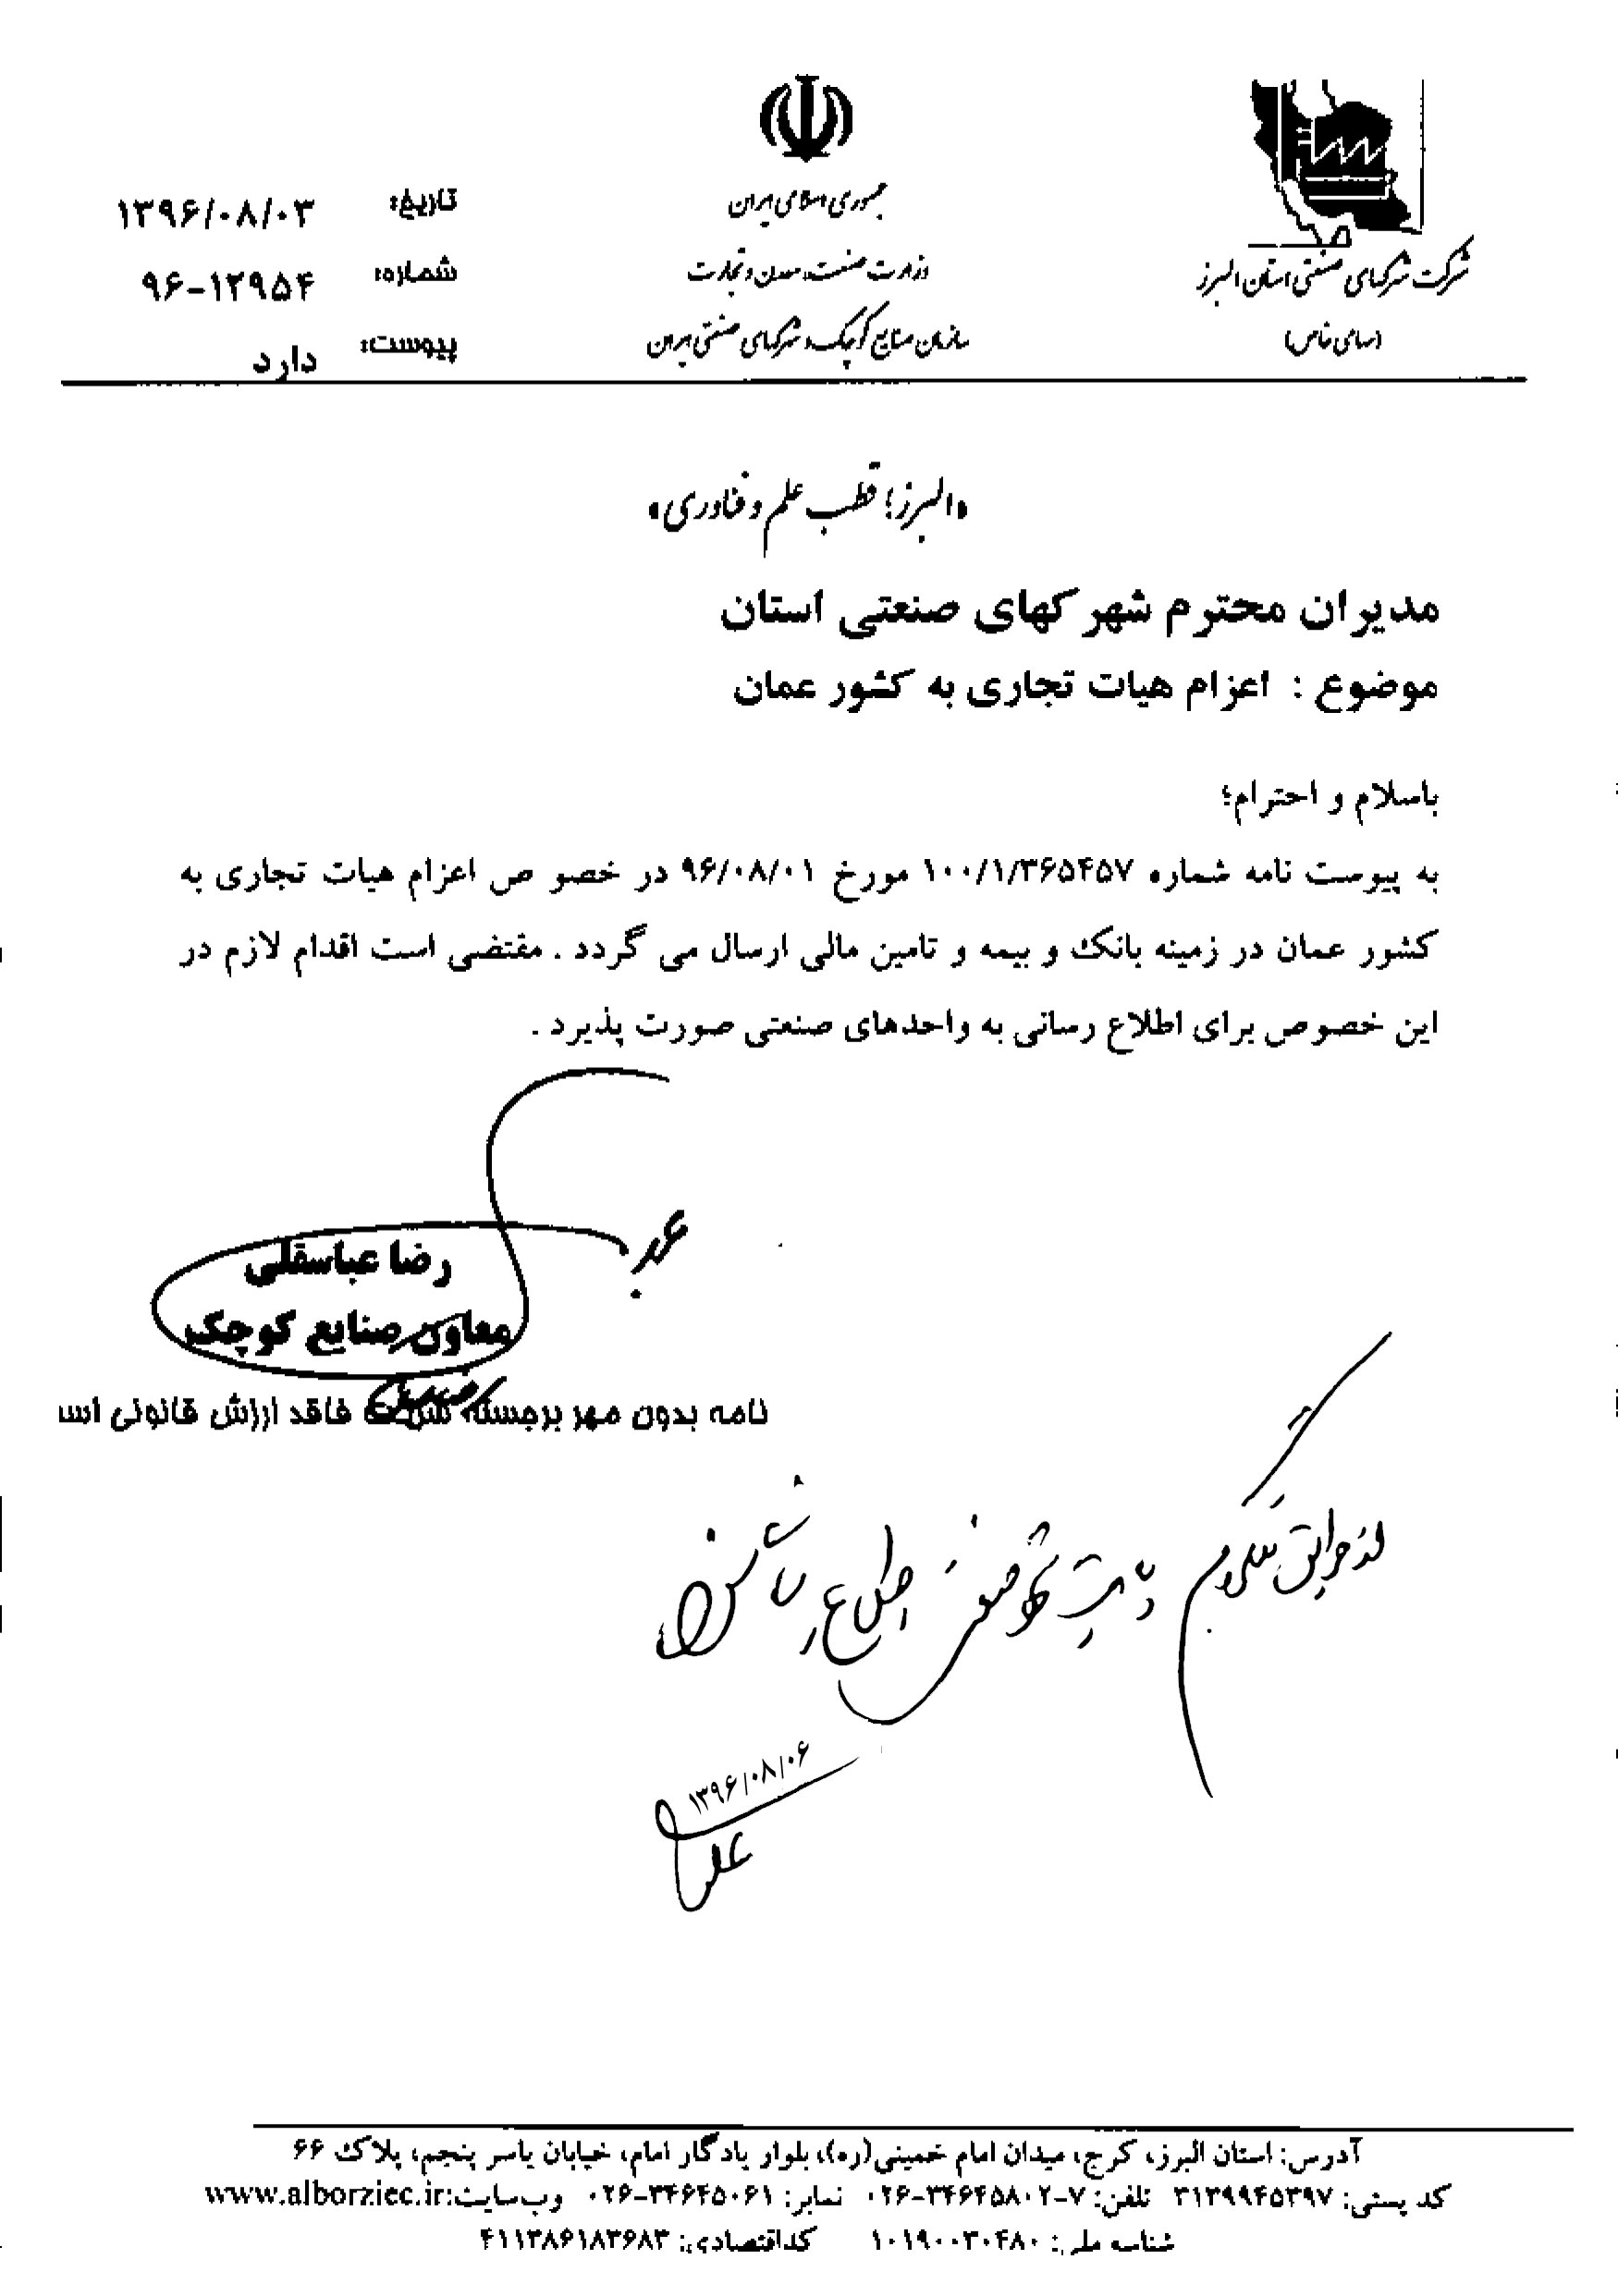 شرکت شهرکهای صنعتی استان البرز
(سهامی خاص)
جمهوری اسلامی ایران
وزارت صنعت، معدن و تجارت
سازمان صنایع کوچک و شهرکهای صنعتی ایران
تاریخ: ۱۳۹۶/۰۸/۰۳
شماره: ۹۶-۱۲۹۵۴
پیوست: دارد
«البرز؛ قطب علم و فناوری»
مدیران محترم شهرکهای صنعتی استان
موضوع : اعزام هیات تجاری به کشور عمان
باسلام و احترام؛
به پیوست نامه شماره ۱۰۰/۱/۳۶۵۴۵۷ مورخ ۹۶/۰۸/۰۱ در خصو ص اعزام هیات تجاری به
کشور عمان در زمینه بانک و بیمه و تامین مالی ارسال می گردد . مقتضی است اقدام لازم در
این خصوص برای اطلاع رسانی به واحدهای صنعتی صورت پذیرد .
رضا عباسقلی
معاون صنایع کوچک
نامه بدون مهر برجسته شرکت فاقد ارزش قانونی اس
اطلاع
۱۳۹۶/۰۸/۰۶
آدرس: استان البرز، کرج، میدان امام خمینی(ره)، بلوار یادگار امام، خیابان یاسر پنجم، پلاک ۶۶
کد پستی: ۳۱۳۹۹۴۵۳۹۷ تلفن: ۷-۰۲۶-۳۴۶۴۵۸۰۲ نمابر: ۰۲۶-۳۴۶۴۵۰۶۱ وب‌سایت:www.alborziec.ir
شناسه ملی: ۱۰۱۹۰۰۳۰۴۸۰ کداقتصادی: ۴۱۱۳۸۶۱۸۳۶۸۳